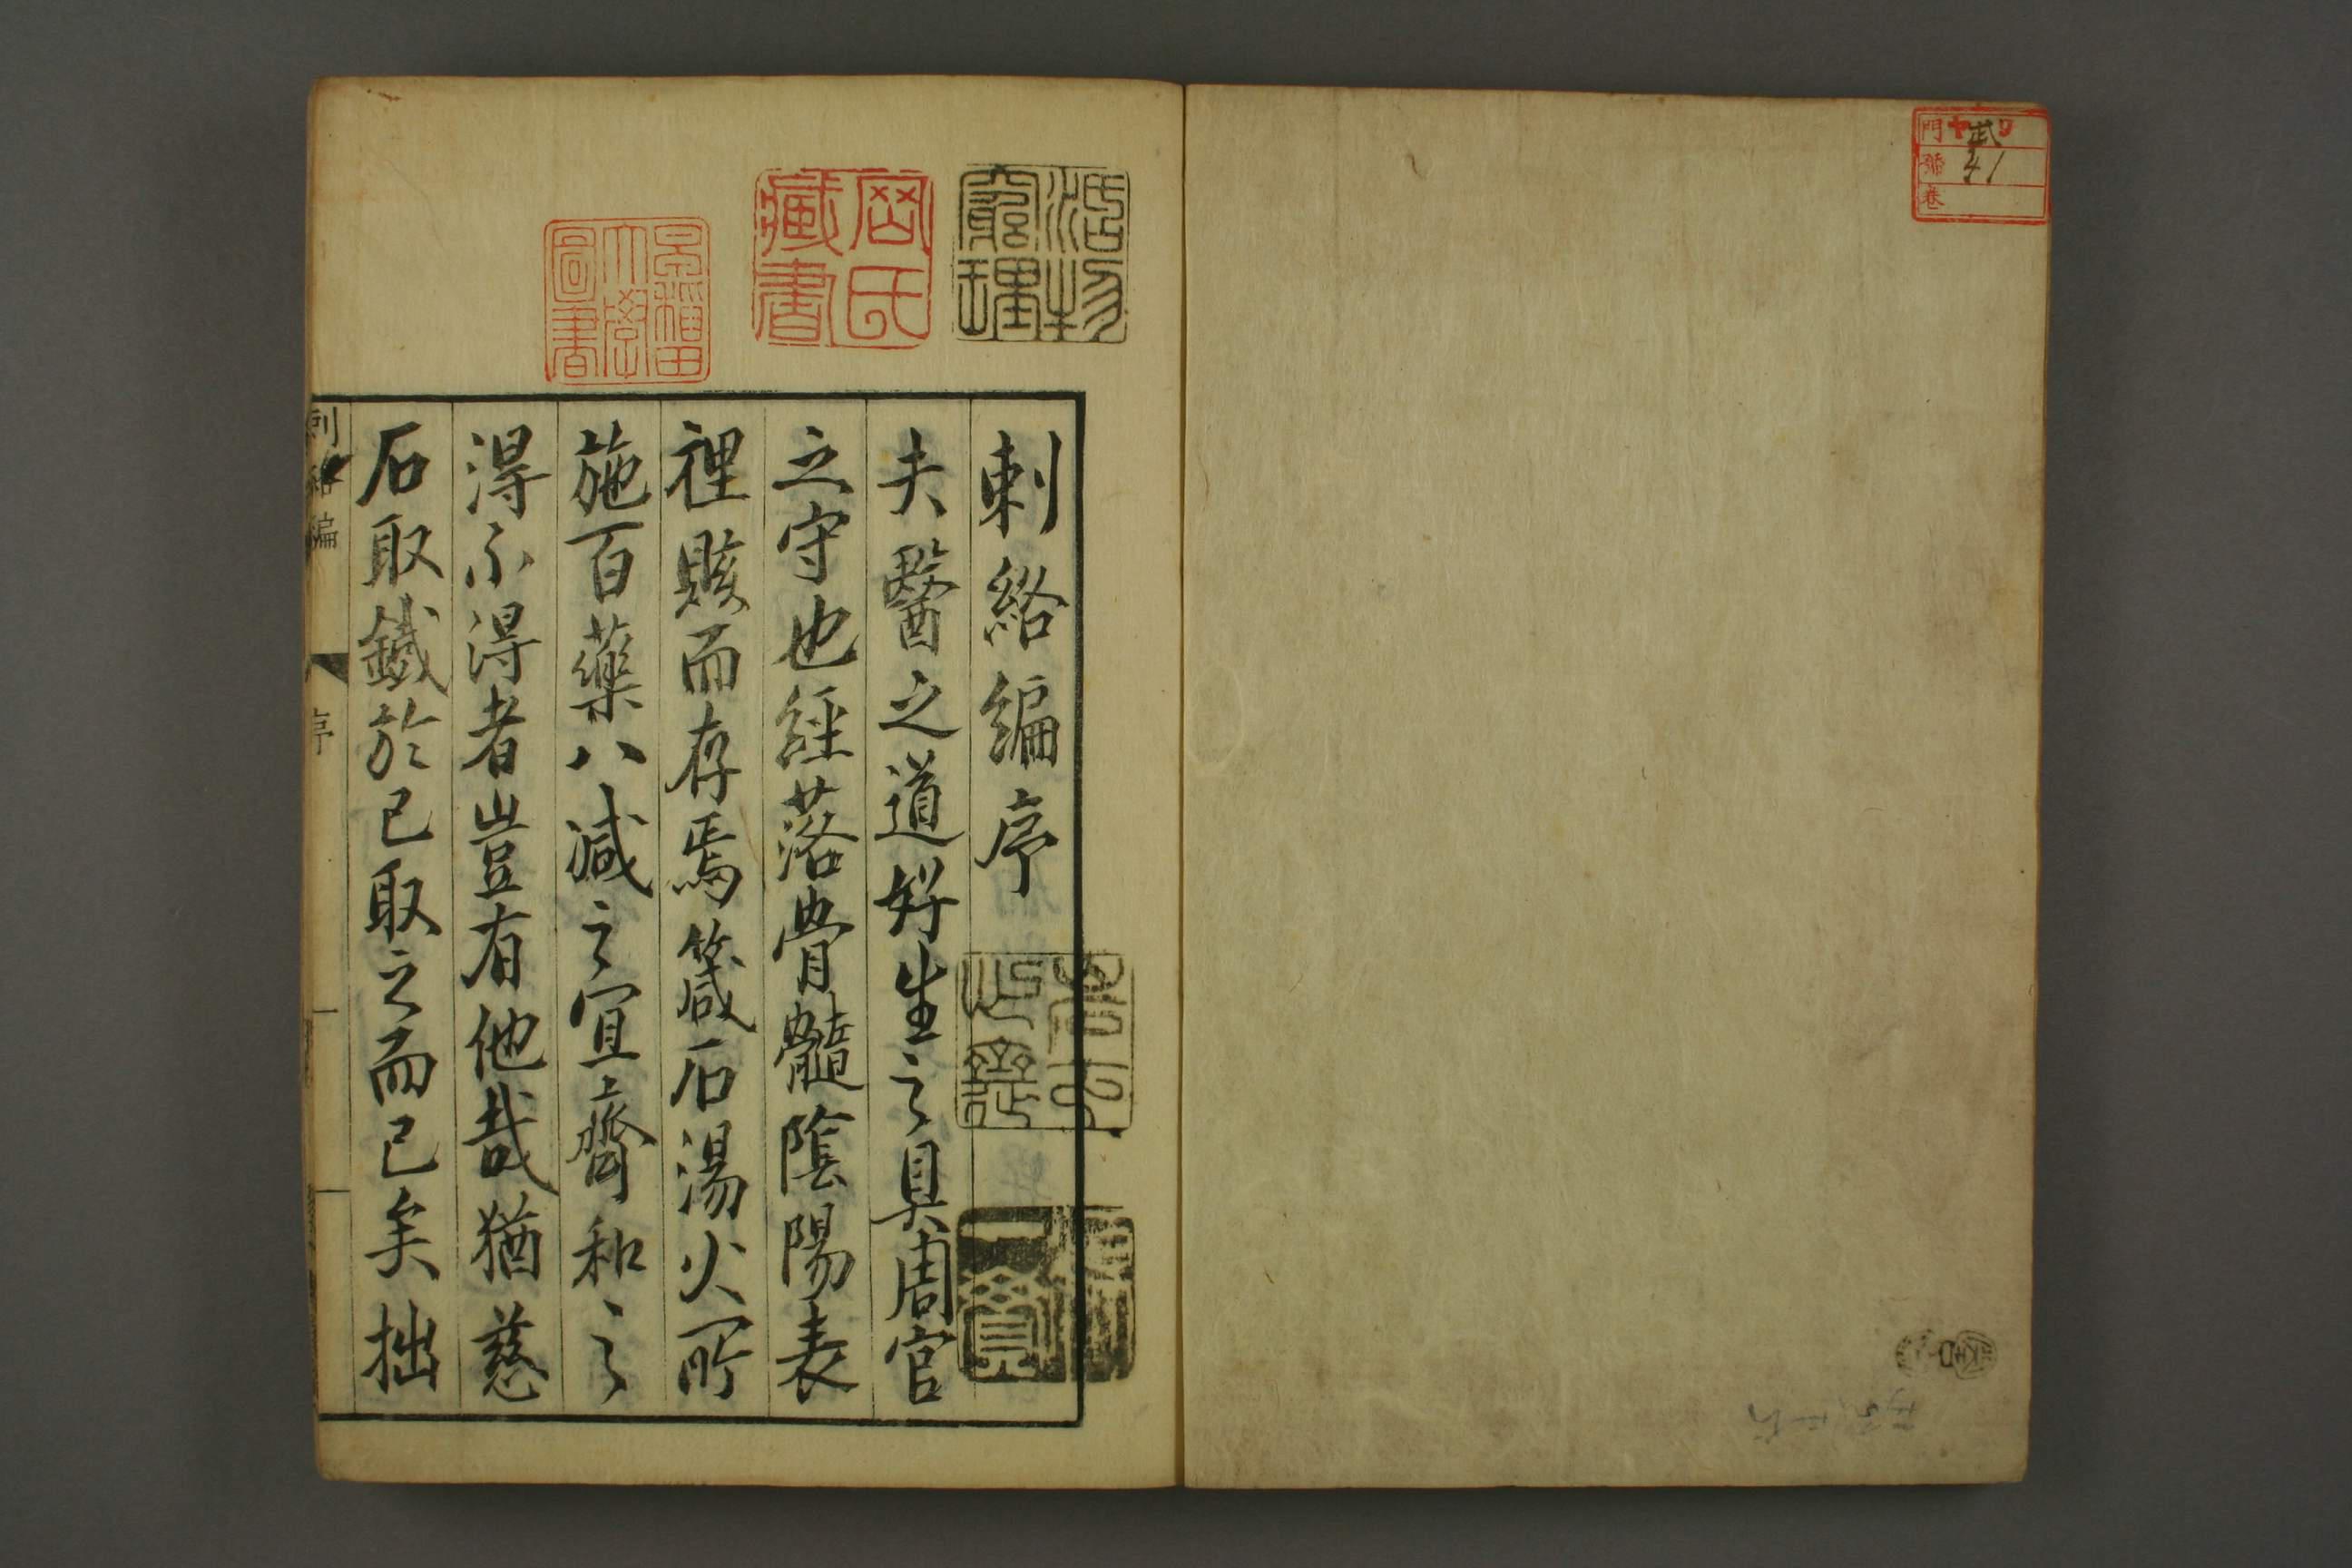 門 ヤ
號 41
卷
活物
窮理
岡氏
藏書
早稲田
大學
圖書
刺絡編序
夫醫之道好生之具周官
之守也經落骨髓陰陽表
裡賅而存焉箴石湯火所
施百藥八減之宜齊和之
得不得者豈有他哉猶慈
石取鐵於已取之而已矣拙
刺絡編
序
一